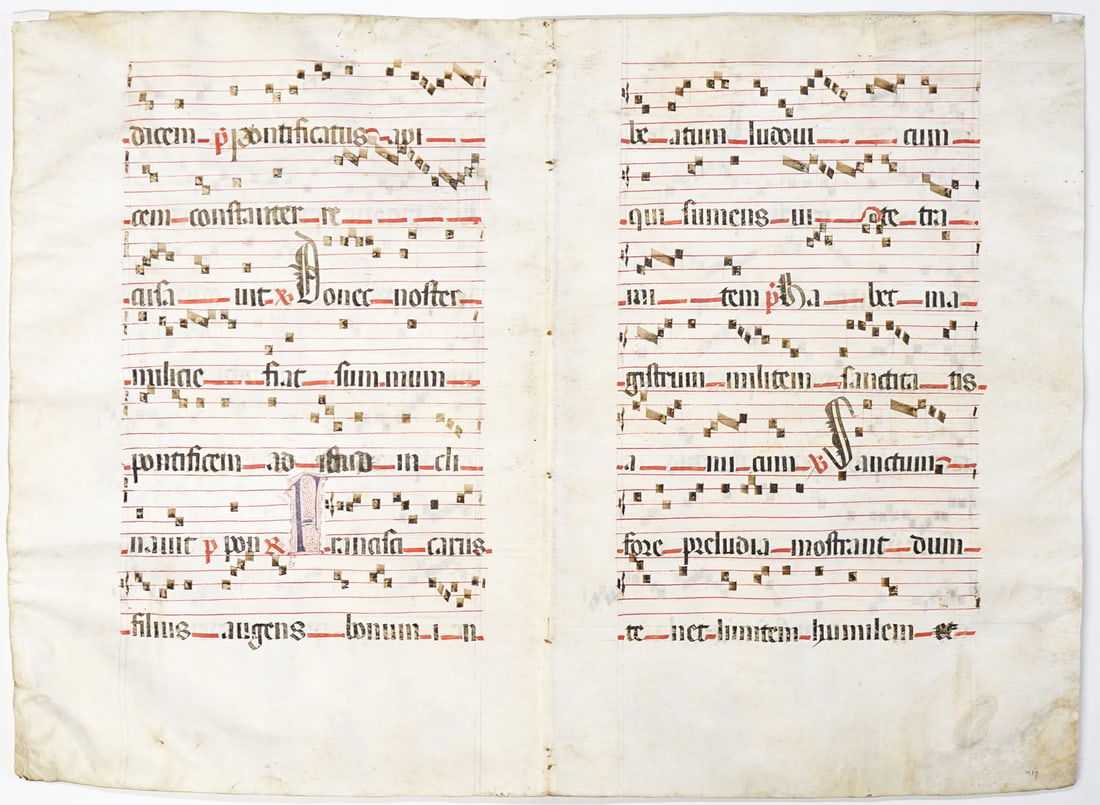 dicem p̄ pontificatus api
cem constanter re
cusa uit ꝟ. Donec noster
milicie fiat summum
pontificem ad istud in cli
nauit p pon ℞ Francisci carus
filius augens bonum i n
be atum ludoui cum
qui sumens ui te tra
mi tem p̄ Ha bet ma
gistrum militem sanctita tis
a mi cum ꝟ Sanctum
fore preludia mostrant dum
te net limitem humilem